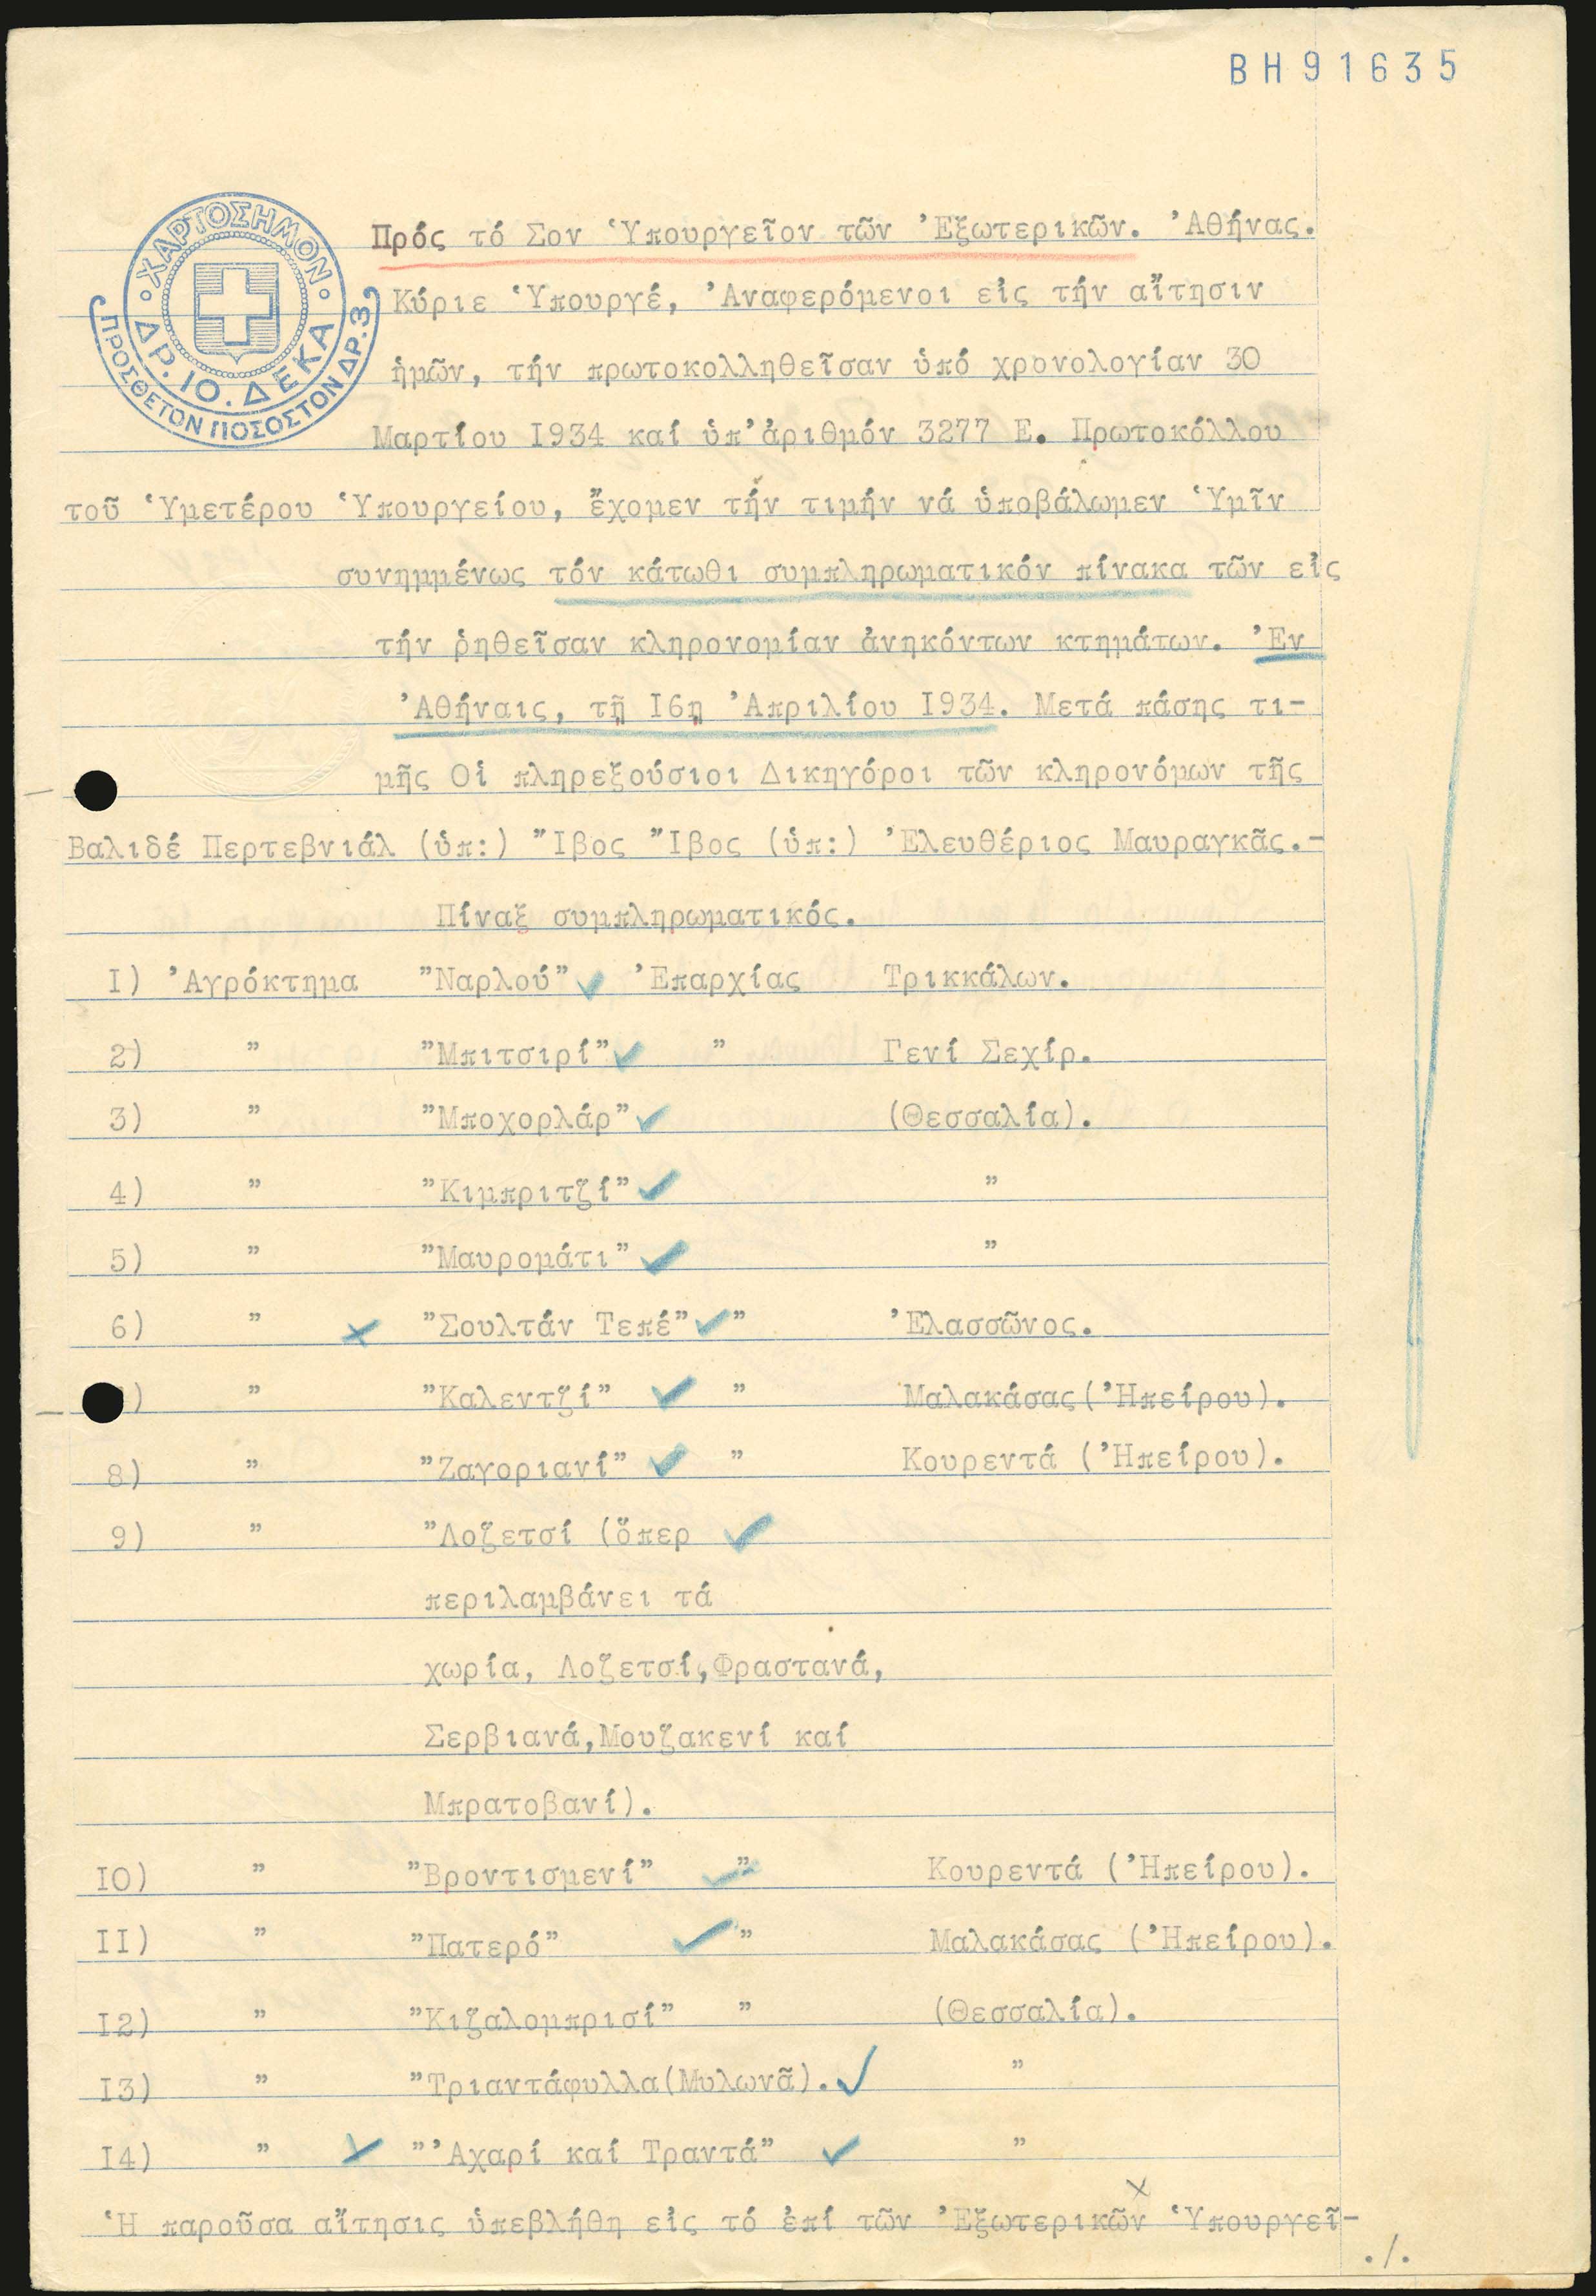 ΒΗ91635
ΧΑΡΤΟΣΗΜΟΝ
ΔΡ. 10. ΔΕΚΑ
ΠΡΟΣΘΕΤΟΝ ΠΟΣΟΣΤΟΝ ΔΡ. 3
Πρός τό Σον Ὑπουργεῖον τῶν Ἐξωτερικῶν. Ἀθήνας.
Κύριε Ὑπουργέ, Ἀναφερόμενοι εἰς τήν αἴτησιν
ἡμῶν, τήν πρωτοκολληθεῖσαν ὑπό χρονολογίαν 30
Μαρτίου I934 καί ὑπ'ἀριθμόν 3277 Ε. Πρωτοκόλλου
τοῦ Ὑμετέρου Ὑπουργείου, ἔχομεν τήν τιμήν νά ὑποβάλωμεν Ὑμῖν
συνημμένως τόν κάτωθι συμπληρωματικόν πίνακα τῶν εἰς
τήν ῥηθεῖσαν κληρονομίαν ἀνηκόντων κτημάτων. Ἐν
Ἀθήναις, τῇ I6ῃ Ἀπριλίου I934. Μετά πάσης τι-
μῆς Οἱ πληρεξούσιοι Δικηγόροι τῶν κληρονόμων τῆς
Βαλιδέ Περτεβνιάλ (ὑπ:) Ἴβος Ἴβος (ὑπ:) Ἐλευθέριος Μαυραγκᾶς.-
Πίναξ συμπληρωματικός.
I) Ἀγρόκτημα "Ναρλού" ✓ Ἐπαρχίας Τρικκάλων.
2) " "Μπιτσιρί" ✓ " Γενί Σεχίρ.
3) " "Μποχορλάρ" ✓ (Θεσσαλία).
4) " "Κιμπριτζί" ✓ "
5) " "Μαυρομάτι" ✓ "
6) " x "Σουλτάν Τεπέ" ✓ " Ἐλασσῶνος.
) " "Καλεντζί" ✓ " Μαλακάσας(Ἠπείρου).
8) " "Ζαγοριανί" ✓ " Κουρεντά (Ἠπείρου).
9) " "Λοζετσί (ὅπερ ✓
περιλαμβάνει τά
χωρία, Λοζετσί,Φραστανά,
Σερβιανά,Μουζακενί καί
Μπρατοβανί).
IO) " "Βροντισμενί" ✓ " Κουρεντά (Ἠπείρου).
II) " "Πατερό" ✓ " Μαλακάσας (Ἠπείρου).
I2) " "Κιζαλομπρισί" " (Θεσσαλία).
I3) " "Τριαντάφυλλα(Μυλωνᾶ). ✓ "
I4) " x "Ἀχαρί καί Τραντά" ✓ "
Ἡ παροῦσα αἴτησις ὑπεβλήθη εἰς τό ἐπί τῶν Ἐξωτερικῶν Ὑπουργεῖ-
./.